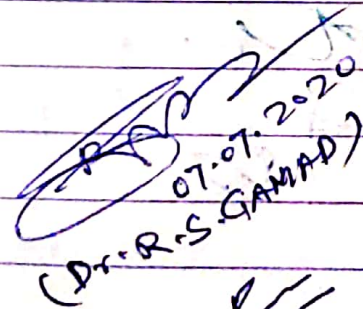 07.07.2020
(Dr. R.S. GAMAD)